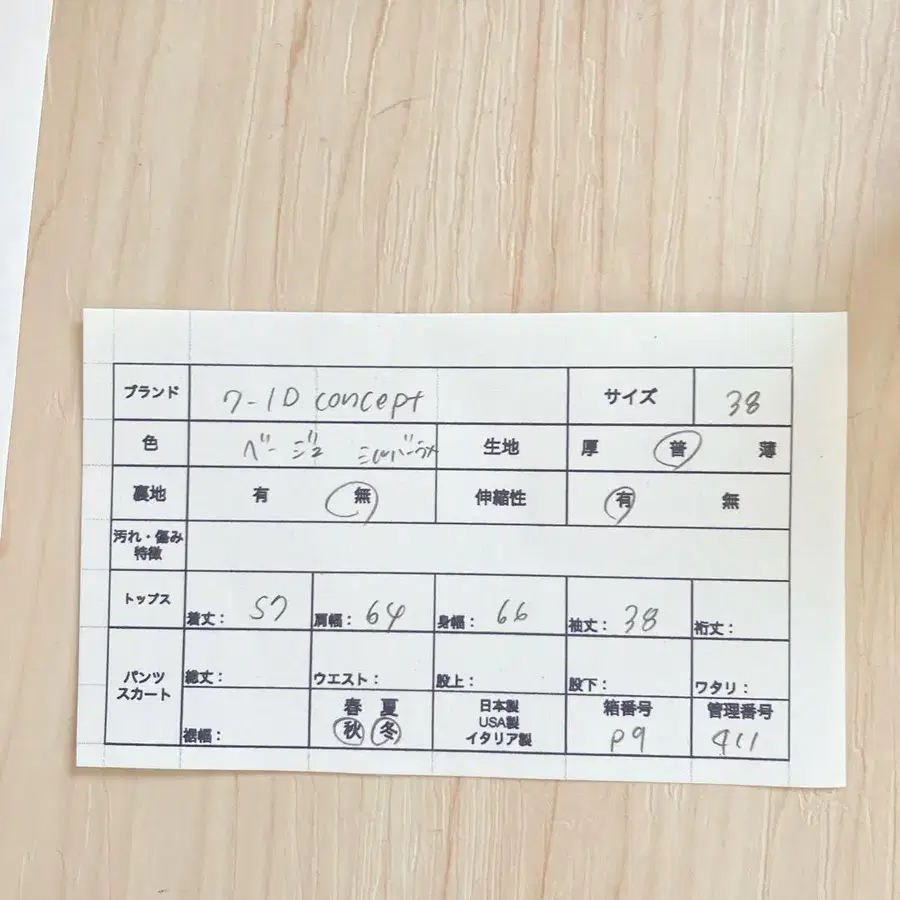 ブランド 7-ID concept サイズ 38
色 ベージュ シルバーラメ 生地 厚 普 薄
裏地 有 無 伸縮性 有 無
汚れ・傷み
特徴
トップス 着丈: 57 肩幅: 64 身幅: 66 袖丈: 38 裄丈:
パンツ
スカート
総丈: ウエスト: 股上: 股下: ワタリ:
裾幅:
春 夏
秋 冬
日本製
USA製
イタリア製
箱番号
P9
管理番号
411